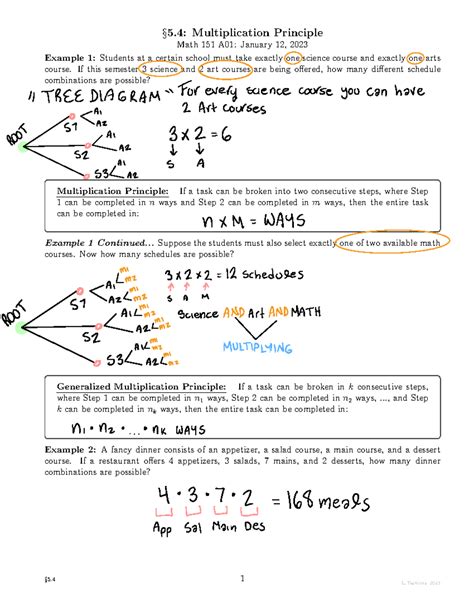 §5.4: Multiplication Principle
Math 151 A01: January 12, 2023
Example 1: Students at a certain school must take exactly one science course and exactly one arts
course. If this semester 3 science and 2 art courses are being offered, how many different schedule
combinations are possible?
" TREE DIAGRAM "
For every science course you can have
2 Art courses
ROOT
S1
A1
A2
S2
A1
A2
S3
A1
A2
3 x 2 = 6
S A
Multiplication Principle: If a task can be broken into two consecutive steps, where Step
1 can be completed in n ways and Step 2 can be completed in m ways, then the entire task
can be completed in:
n x M = WAYS
Example 1 Continued... Suppose the students must also select exactly one of two available math
courses. Now how many schedules are possible?
ROOT
S1
A1
m1
m2
A2
m1
m2
S2
A1
m1
m2
A2
m1
m2
S3
A1
m1
m2
A2
m1
m2
3 x 2 x 2 = 12 schedules
S A M
Science AND Art AND MATH
MULTIPLYING
Generalized Multiplication Principle: If a task can be broken in k consecutive steps,
where Step 1 can be completed in n₁ ways, Step 2 can be completed in n₂ ways, ..., and Step
k can be completed in nₖ ways, then the entire task can be completed in:
n₁ • n₂ • ... • nₖ WAYS
Example 2: A fancy dinner consists of an appetizer, a salad course, a main course, and a dessert
course. If a restaurant offers 4 appetizers, 3 salads, 7 mains, and 2 desserts, how many dinner
combinations are possible?
4 • 3 • 7 • 2 = 168 meals
App Sal Main Des
§5.4
1